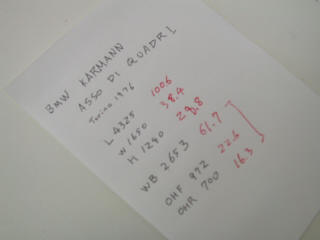 BMW KARMANN
ASSO DI QUADRI
Torino 1976
L 4325 1006
W 1650 38.4
H 1290 29.8
WB 2653 61.7
OHF 972 22.6
OHR 700 16.3